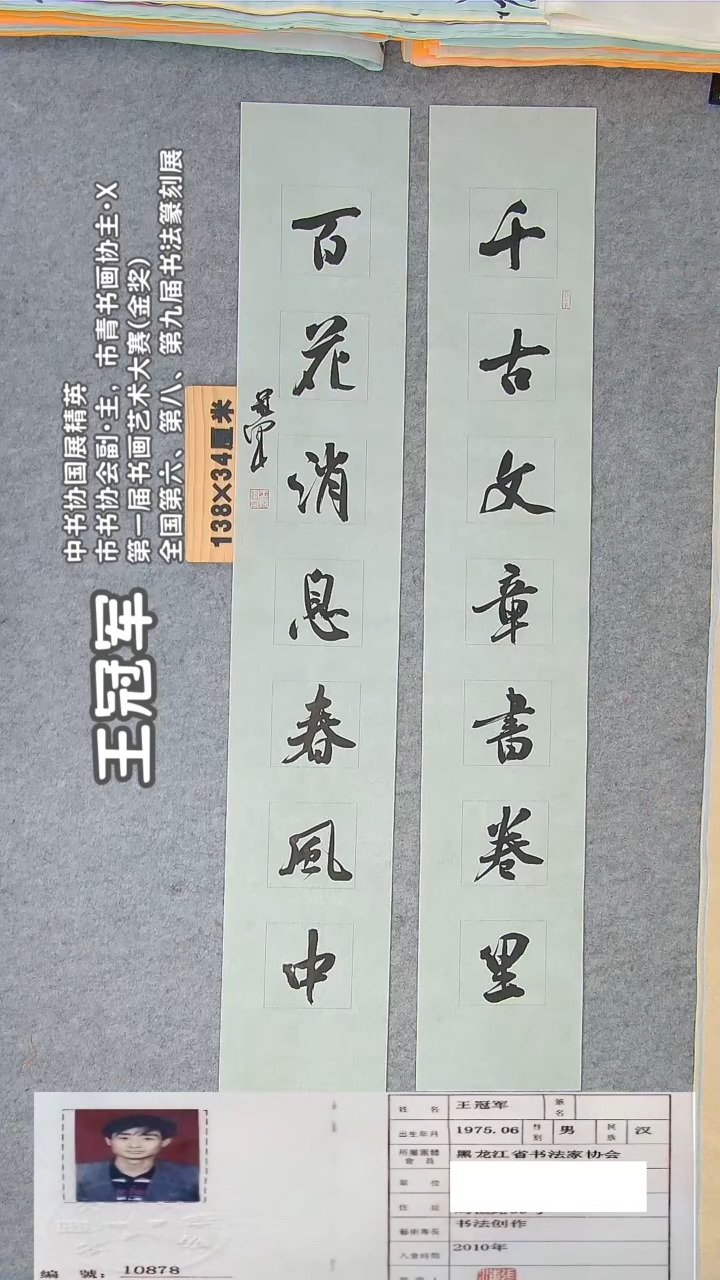 千古文章書卷里
百花消息春風中
冠軍
138×34厘米
中书协国展精英
市书协会副·主，市青书画协主·X
第一届书画艺术大赛(金奖)
全国第六、第八、第九届书法篆刻展
王冠军
編 號：10878
姓 名 王冠军 筆名
出生年月 1975.06 性别 男 民族 汉
所屬團體會員 黑龙江省书法家协会
單 位
住 址
藝術專長 书法创作
入會時間 2010年